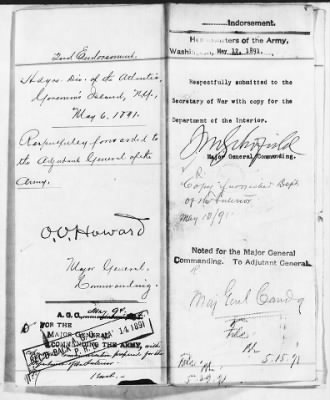 2nd Endorsement.
Hdqrs. Div. of the Atlantic,
Governor's Island, N.Y.,
May 6, 1891.
Respectfully forwarded to
the Adjutant General of the
Army.
O.O. Howard
Major General,
Commanding.
A. G. O.
May 9
FOR THE
MAJOR GENERAL
COMMANDING THE ARMY, with
prepared for the
14 1891
Indorsement.
Headquarters of the Army,
Washington, May 12, 1891.
Respectfully submitted to the
Secretary of War with copy for the
Department of the Interior.
J M Schofield
Major General Commanding.
Copy furnished Dept
of the Interior
May 10/91
Noted for the Major General
Commanding. To Adjutant General.
5.15.91
5.29.91